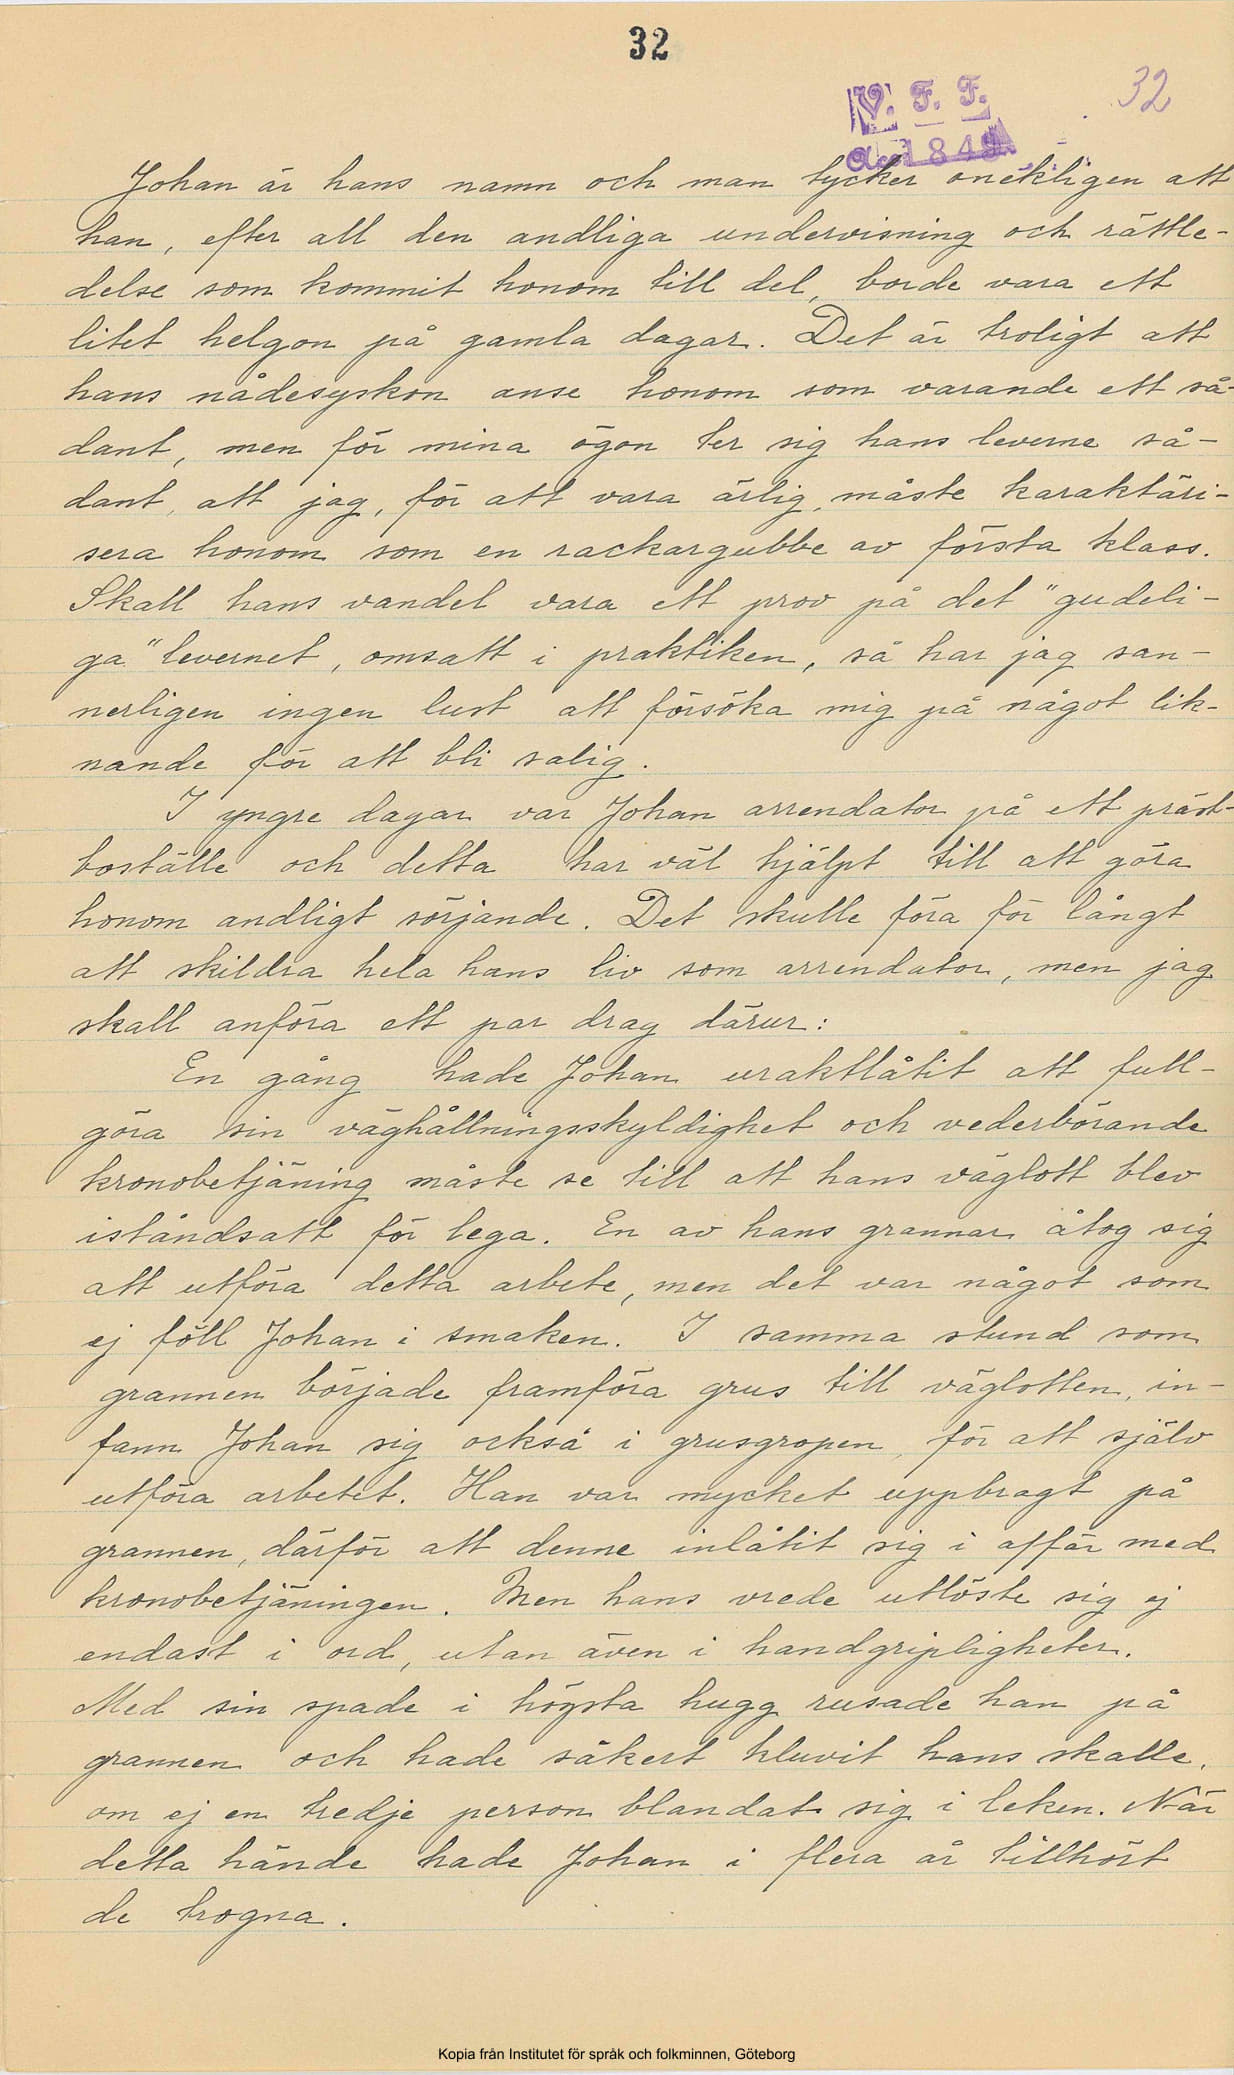 32
32
V. F. F.
a. 1849
Johan är hans namn och man tycker onekligen att
han, efter all den andliga undervisning och rättle-
delse som kommit honom till del, borde vara ett
litet helgon på gamla dagar. Det är troligt att
hans nådesyskon anse honom som varande ett så-
dant, men för mina ögon ter sig hans leverne så-
dant, att jag, för att vara ärlig, måste karaktäri-
sera honom som en rackargubbe av första klass.
Skall hans vandel vara ett prov på det "gudeli-
ga" levernet, omsatt i praktiken, så har jag san-
nerligen ingen lust att försöka mig på något lik-
nande för att bli salig.
I yngre dagar var Johan arrendator på ett präst-
boställe och detta har väl hjälpt till att göra
honom andligt sörjande. Det skulle föra för långt
att skildra hela hans liv som arrendator, men jag
skall anföra ett par drag därur:
En gång hade Johan uraktlåtit att full-
göra sin väghållningsskyldighet och vederbörande
kronobetjäning måste se till att hans väglott blev
iståndsatt för lega. En av hans grannar åtog sig
att utföra detta arbete, men det var något som
ej föll Johan i smaken. I samma stund som
grannen började framföra grus till väglotten, in-
fann Johan sig också i grusgropen, för att själv
utföra arbetet. Han var mycket uppbragt på
grannen, därför att denne inlåtit sig i affär med
kronobetjäningen. Men hans vrede utlöste sig ej
endast i ord, utan även i handgripligheter.
Med sin spade i högsta hugg rusade han på
grannen och hade säkert kluvit hans skalle,
om ej en tredje person blandat sig i leken. När
detta hände hade Johan i flera år tillhört
de trogna.
Kopia från Institutet för språk och folkminnen, Göteborg